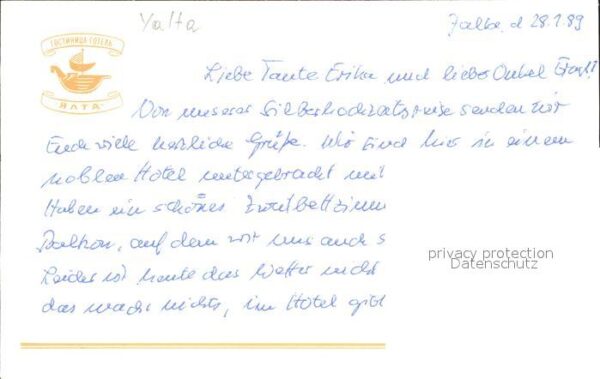 Yalta
Jalta, d 28.1.89
ГОСТИНИЦА ГОТЕЛЬ
ЯЛТА
Liebe Tante Erika und lieber Onkel Ernst!
Von unserer Silberhochzeitsreise senden wir
Euch viele herzliche Grüße. Wir sind hier in einem
noblen Hotel untergebracht mit
Haben ein schönes Zweibettzimm
Balkon, auf dem wir uns auch s
Leider ist heute das Wetter nicht
das macht nichts, im Hotel gibt
privacy protection
Datenschutz